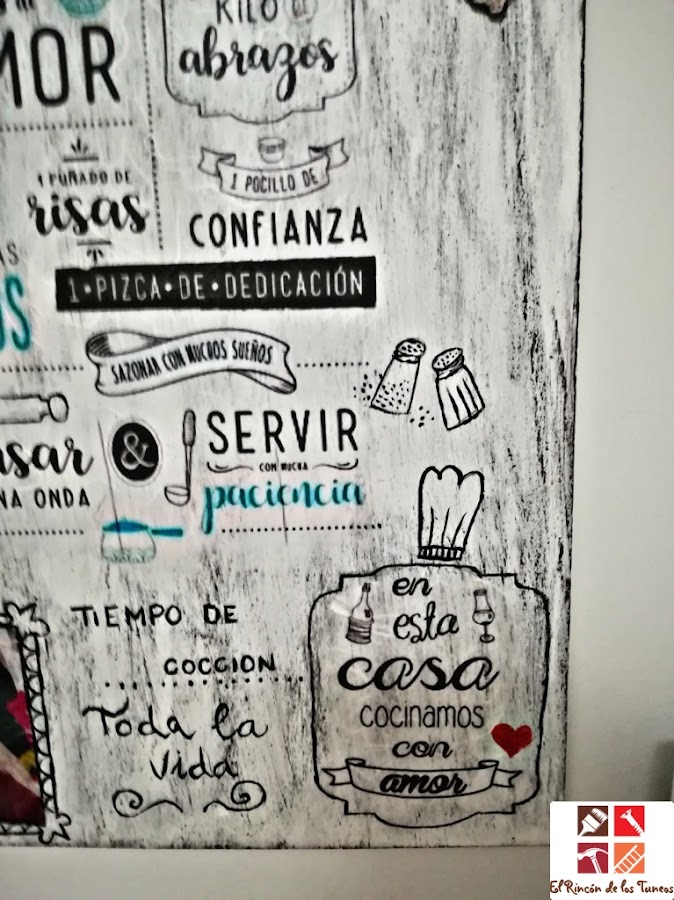 KILO DE
abrazos
MOR
1 PUÑADO DE
risas
1 POCILLO DE
CONFIANZA
1•PIZCA•DE•DEDICACIÓN
SAZONAR CON MUCHOS SUEÑOS
&
SERVIR
CON MUCHA
paciencia
NA ONDA
TIEMPO DE
COCCION
Toda la
vida
en
esta
casa
cocinamos
con
amor
El Rincón de los Tuneos